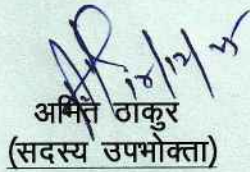 18/12/25
अमित ठाकुर
(सदस्य उपभोक्ता)